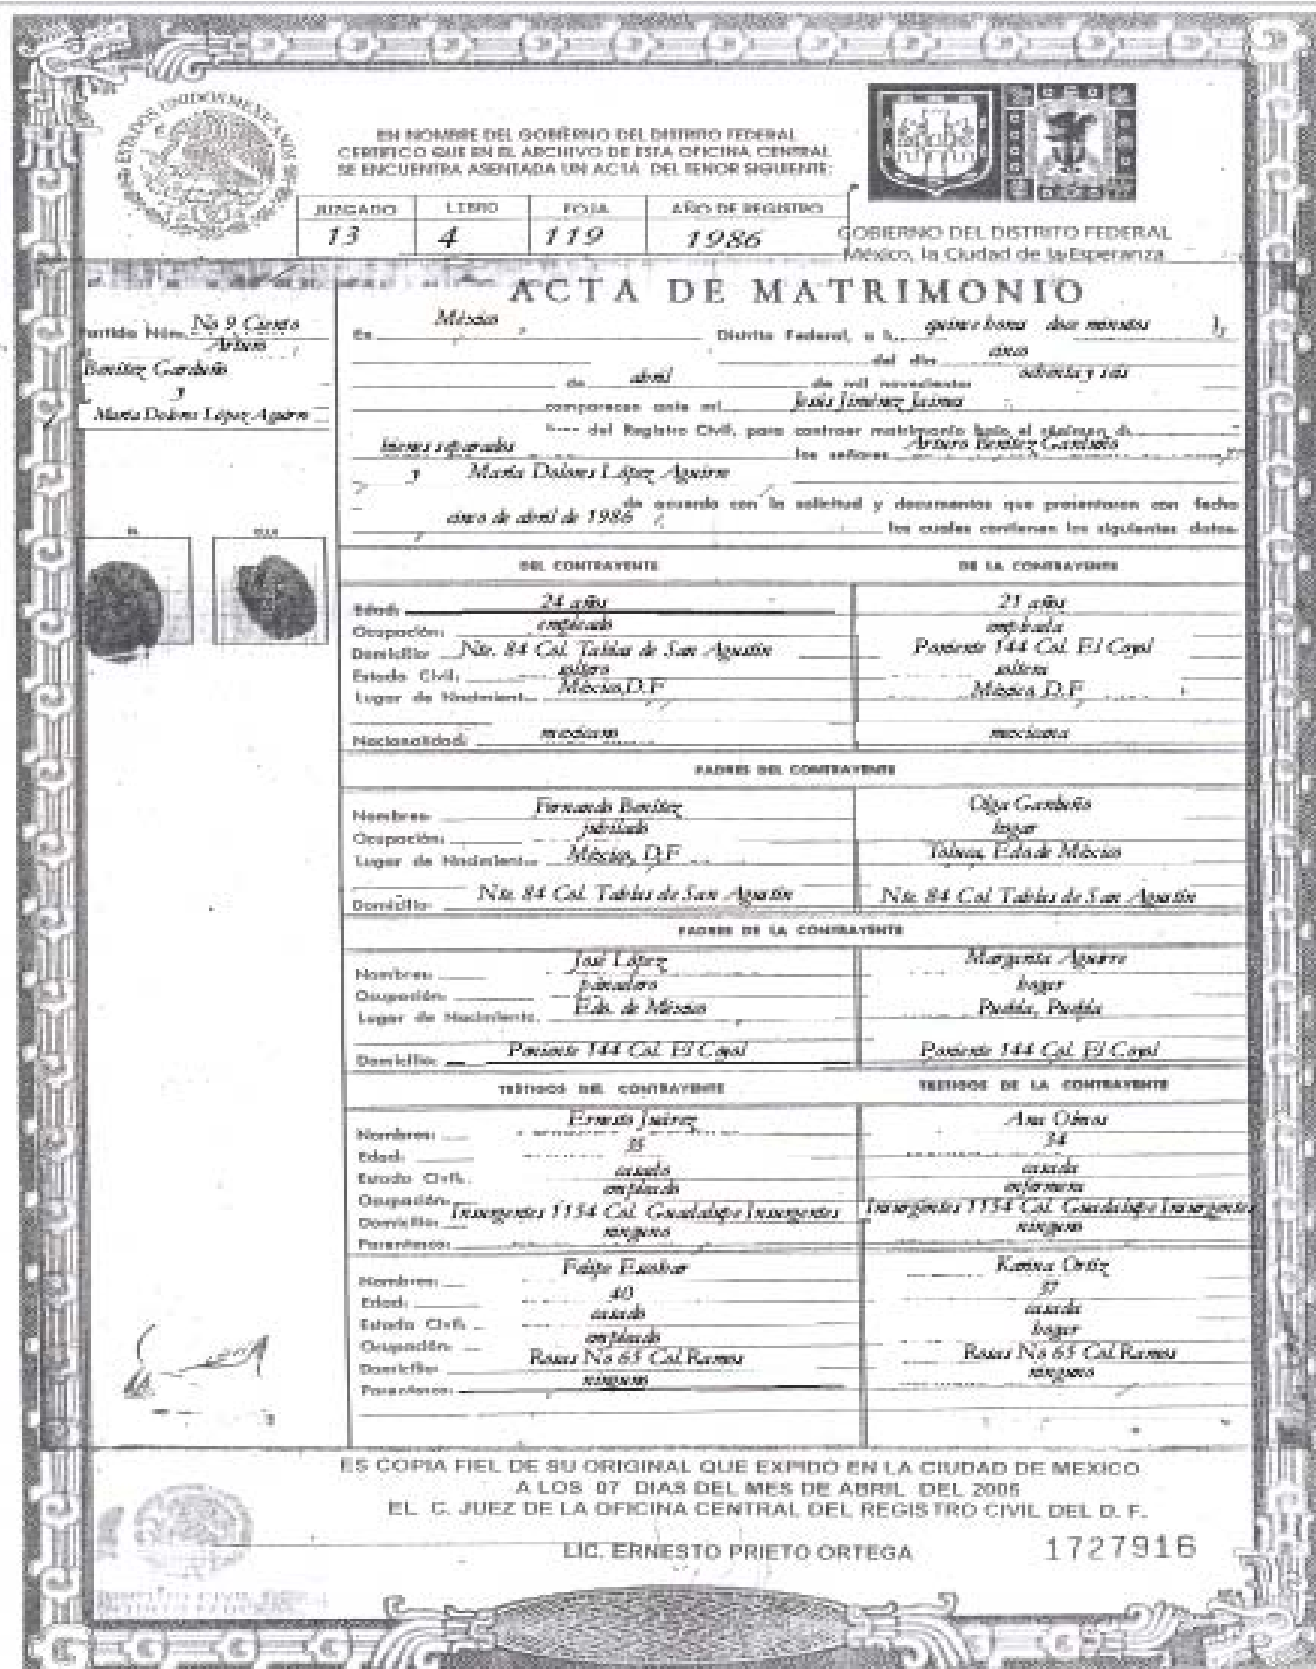 ESTADOS UNIDOS MEXICANOS
EN NOMBRE DEL GOBIERNO DEL DISTRITO FEDERAL
CERTIFICO QUE EN EL ARCHIVO DE ESTA OFICINA CENTRAL
SE ENCUENTRA ASENTADA UN ACTA DEL TENOR SIGUIENTE:
JUZGADO LIBRO FOJA AÑO DE REGISTRO
13 4 119 1986
GOBIERNO DEL DISTRITO FEDERAL
México, la Ciudad de la Esperanza
ACTA DE MATRIMONIO
Partida Núm. No 9 Ciento
Arturo
Benítez Garduño
y
María Dolores López Aguirre
En México, Distrito Federal, a l quince horas doce minutos
del día cinco
de abril de mil novecientos ochenta y seis
comparecen ante mí Jesús Jiménez
del Registro Civil, para contraer matrimonio bajo el régimen d
bienes separados los señores Arturo Benítez Garduño
y María Dolores López Aguirre
de acuerdo con la solicitud y documentos que presentaron con fecha
cinco de abril de 1986 los cuales contienen los siguientes datos.
EL ELLA
DEL CONTRAYENTE DE LA CONTRAYENTE
Edad: 24 años 21 años
Ocupación: empleado empleada
Domicilio: Nte. 84 Col. Tablas de San Agustín Poniente 144 Col. El Coyol
Estado Civil: soltero soltera
Lugar de Nacimiento México, D.F México, D.F
Nacionalidad: mexicano mexicana
PADRES DEL CONTRAYENTE
Nombres: Fernando Benítez Olga Garduño
Ocupación: jubilado hogar
Lugar de Nacimiento México, D.F Toluca, Edo de México
Domicilio: Nte. 84 Col. Tablas de San Agustín Nte. 84 Col. Tablas de San Agustín
PADRES DE LA CONTRAYENTE
Nombres: José López Margarita Aguirre
Ocupación: panadero hogar
Lugar de Nacimiento. Edo. de México Puebla, Puebla
Domicilio: Poniente 144 Col. El Coyol Poniente 144 Col. El Coyol
TESTIGOS DEL CONTRAYENTE TESTIGOS DE LA CONTRAYENTE
Nombres: Ernesto Juárez Ana Olmos
Edad: 35 34
Estado Civil: casado casada
Ocupación: empleado enfermera
Domicilio: Insurgentes 1154 Col. Guadalupe Insurgentes Insurgentes 1154 Col. Guadalupe Insurgentes
Parentesco: ninguno ninguno
Nombres: Felipe Escobar Karina Ortiz
Edad: 40 37
Estado Civil: casado casada
Ocupación: empleado hogar
Domicilio: Rosas No 65 Col. Ramos Rosas No 65 Col. Ramos
Parentesco: ninguno ninguno
ES COPIA FIEL DE SU ORIGINAL QUE EXPIDO EN LA CIUDAD DE MEXICO
A LOS 07 DIAS DEL MES DE ABRIL DEL 2005
EL C. JUEZ DE LA OFICINA CENTRAL DEL REGISTRO CIVIL DEL D. F.
LIC. ERNESTO PRIETO ORTEGA 1727916